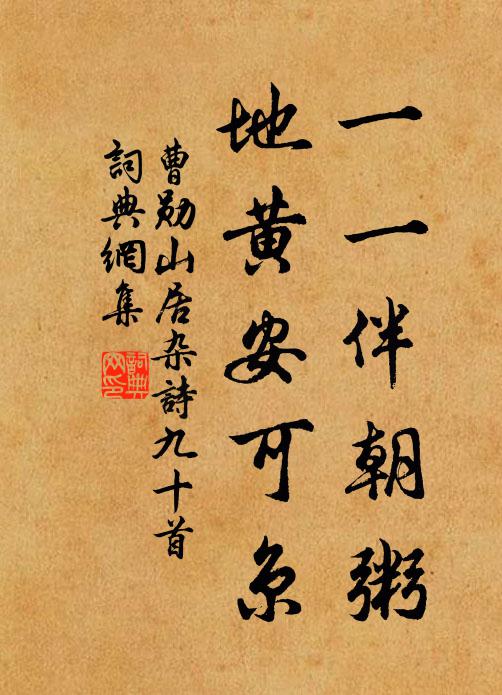 一一伴朝粥
地黄安可京
曹勋山居杂詩九十首
詞典網集
詞典
网印